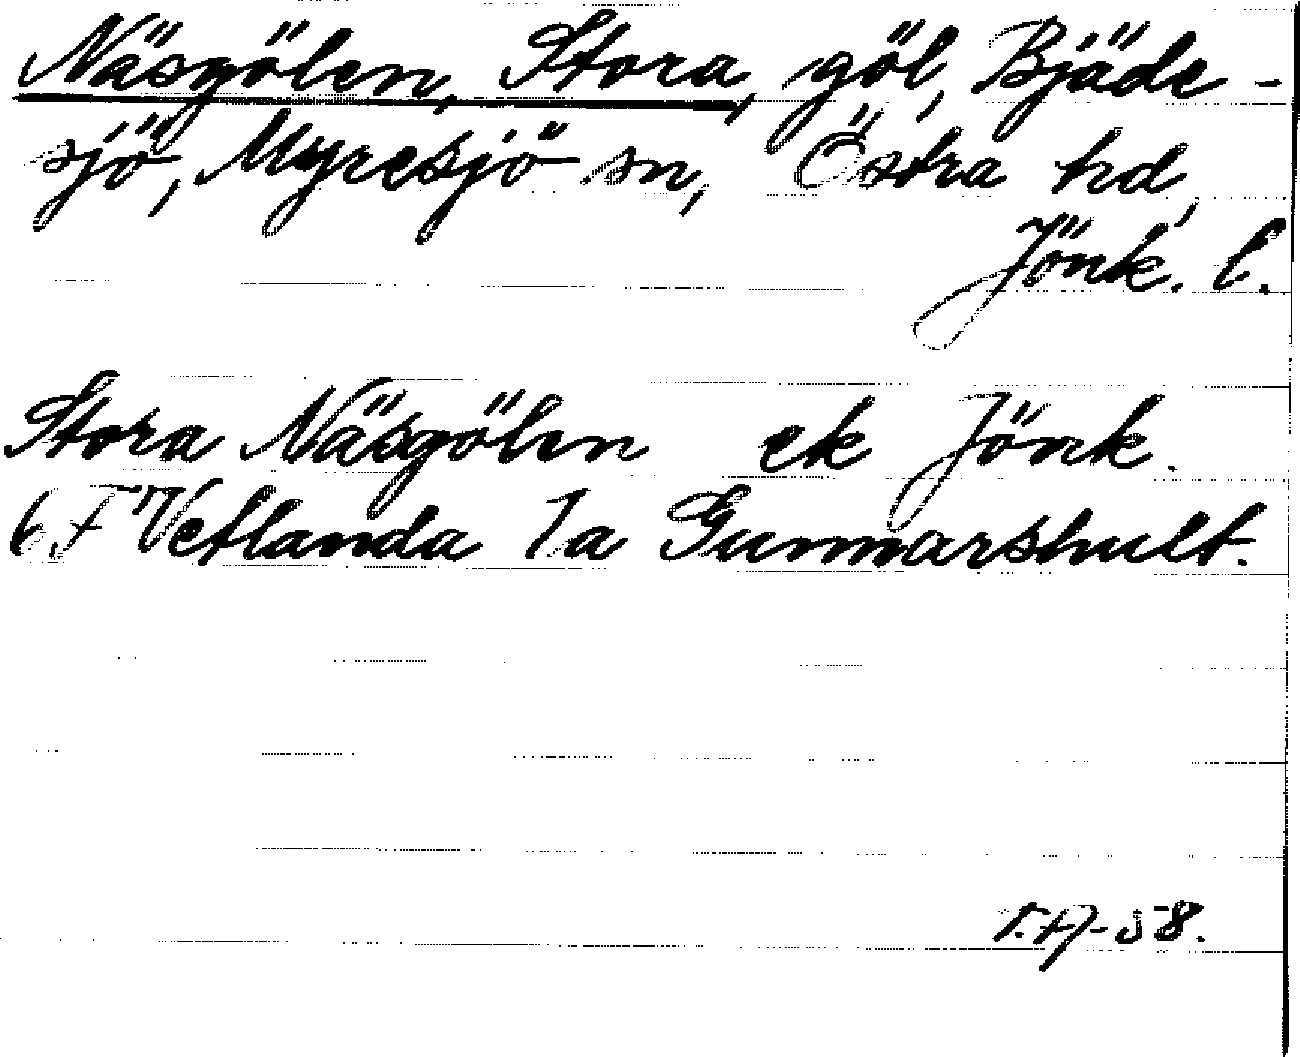 Näsgölen, Stora, göl, Bjäde-
sjö, Myresjö sn, Östra hd,
Jönk. l.
Stora Näsgölen ek Jönk.
6 F Vetlanda 1a Gunnarshult.
58.